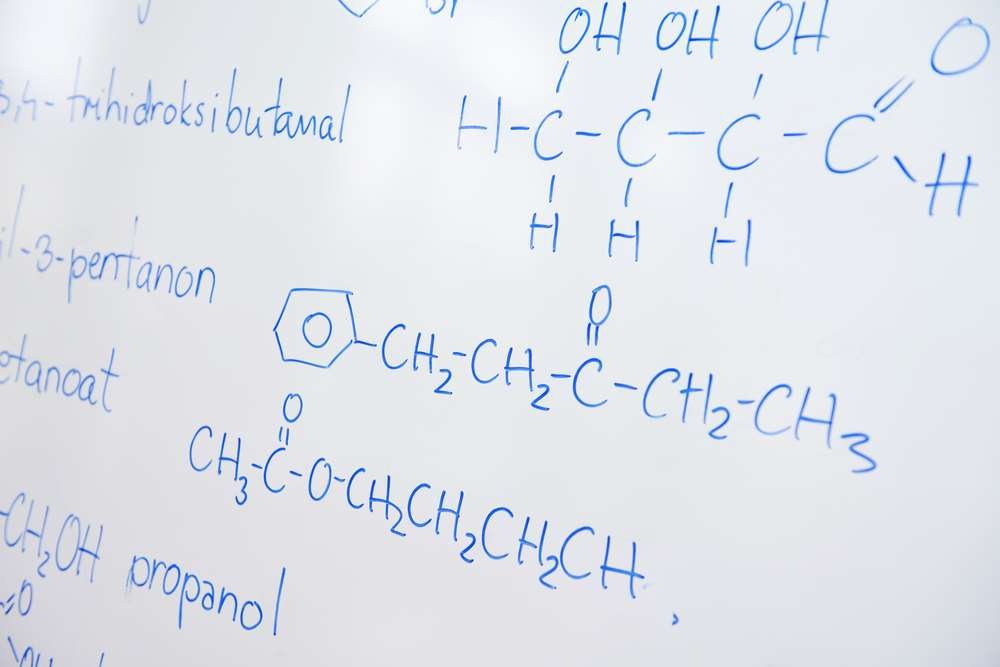 OH OH OH O
3,4-trihidroksibutanal H-C-C-C-C-H
H H H
il-3-pentanon
O
CH₂-CH₂-C-CH₂-CH₃
etanoat
O
CH₃-C-O-CH₂CH₂CH₂CH
-CH₂OH propanol
=O